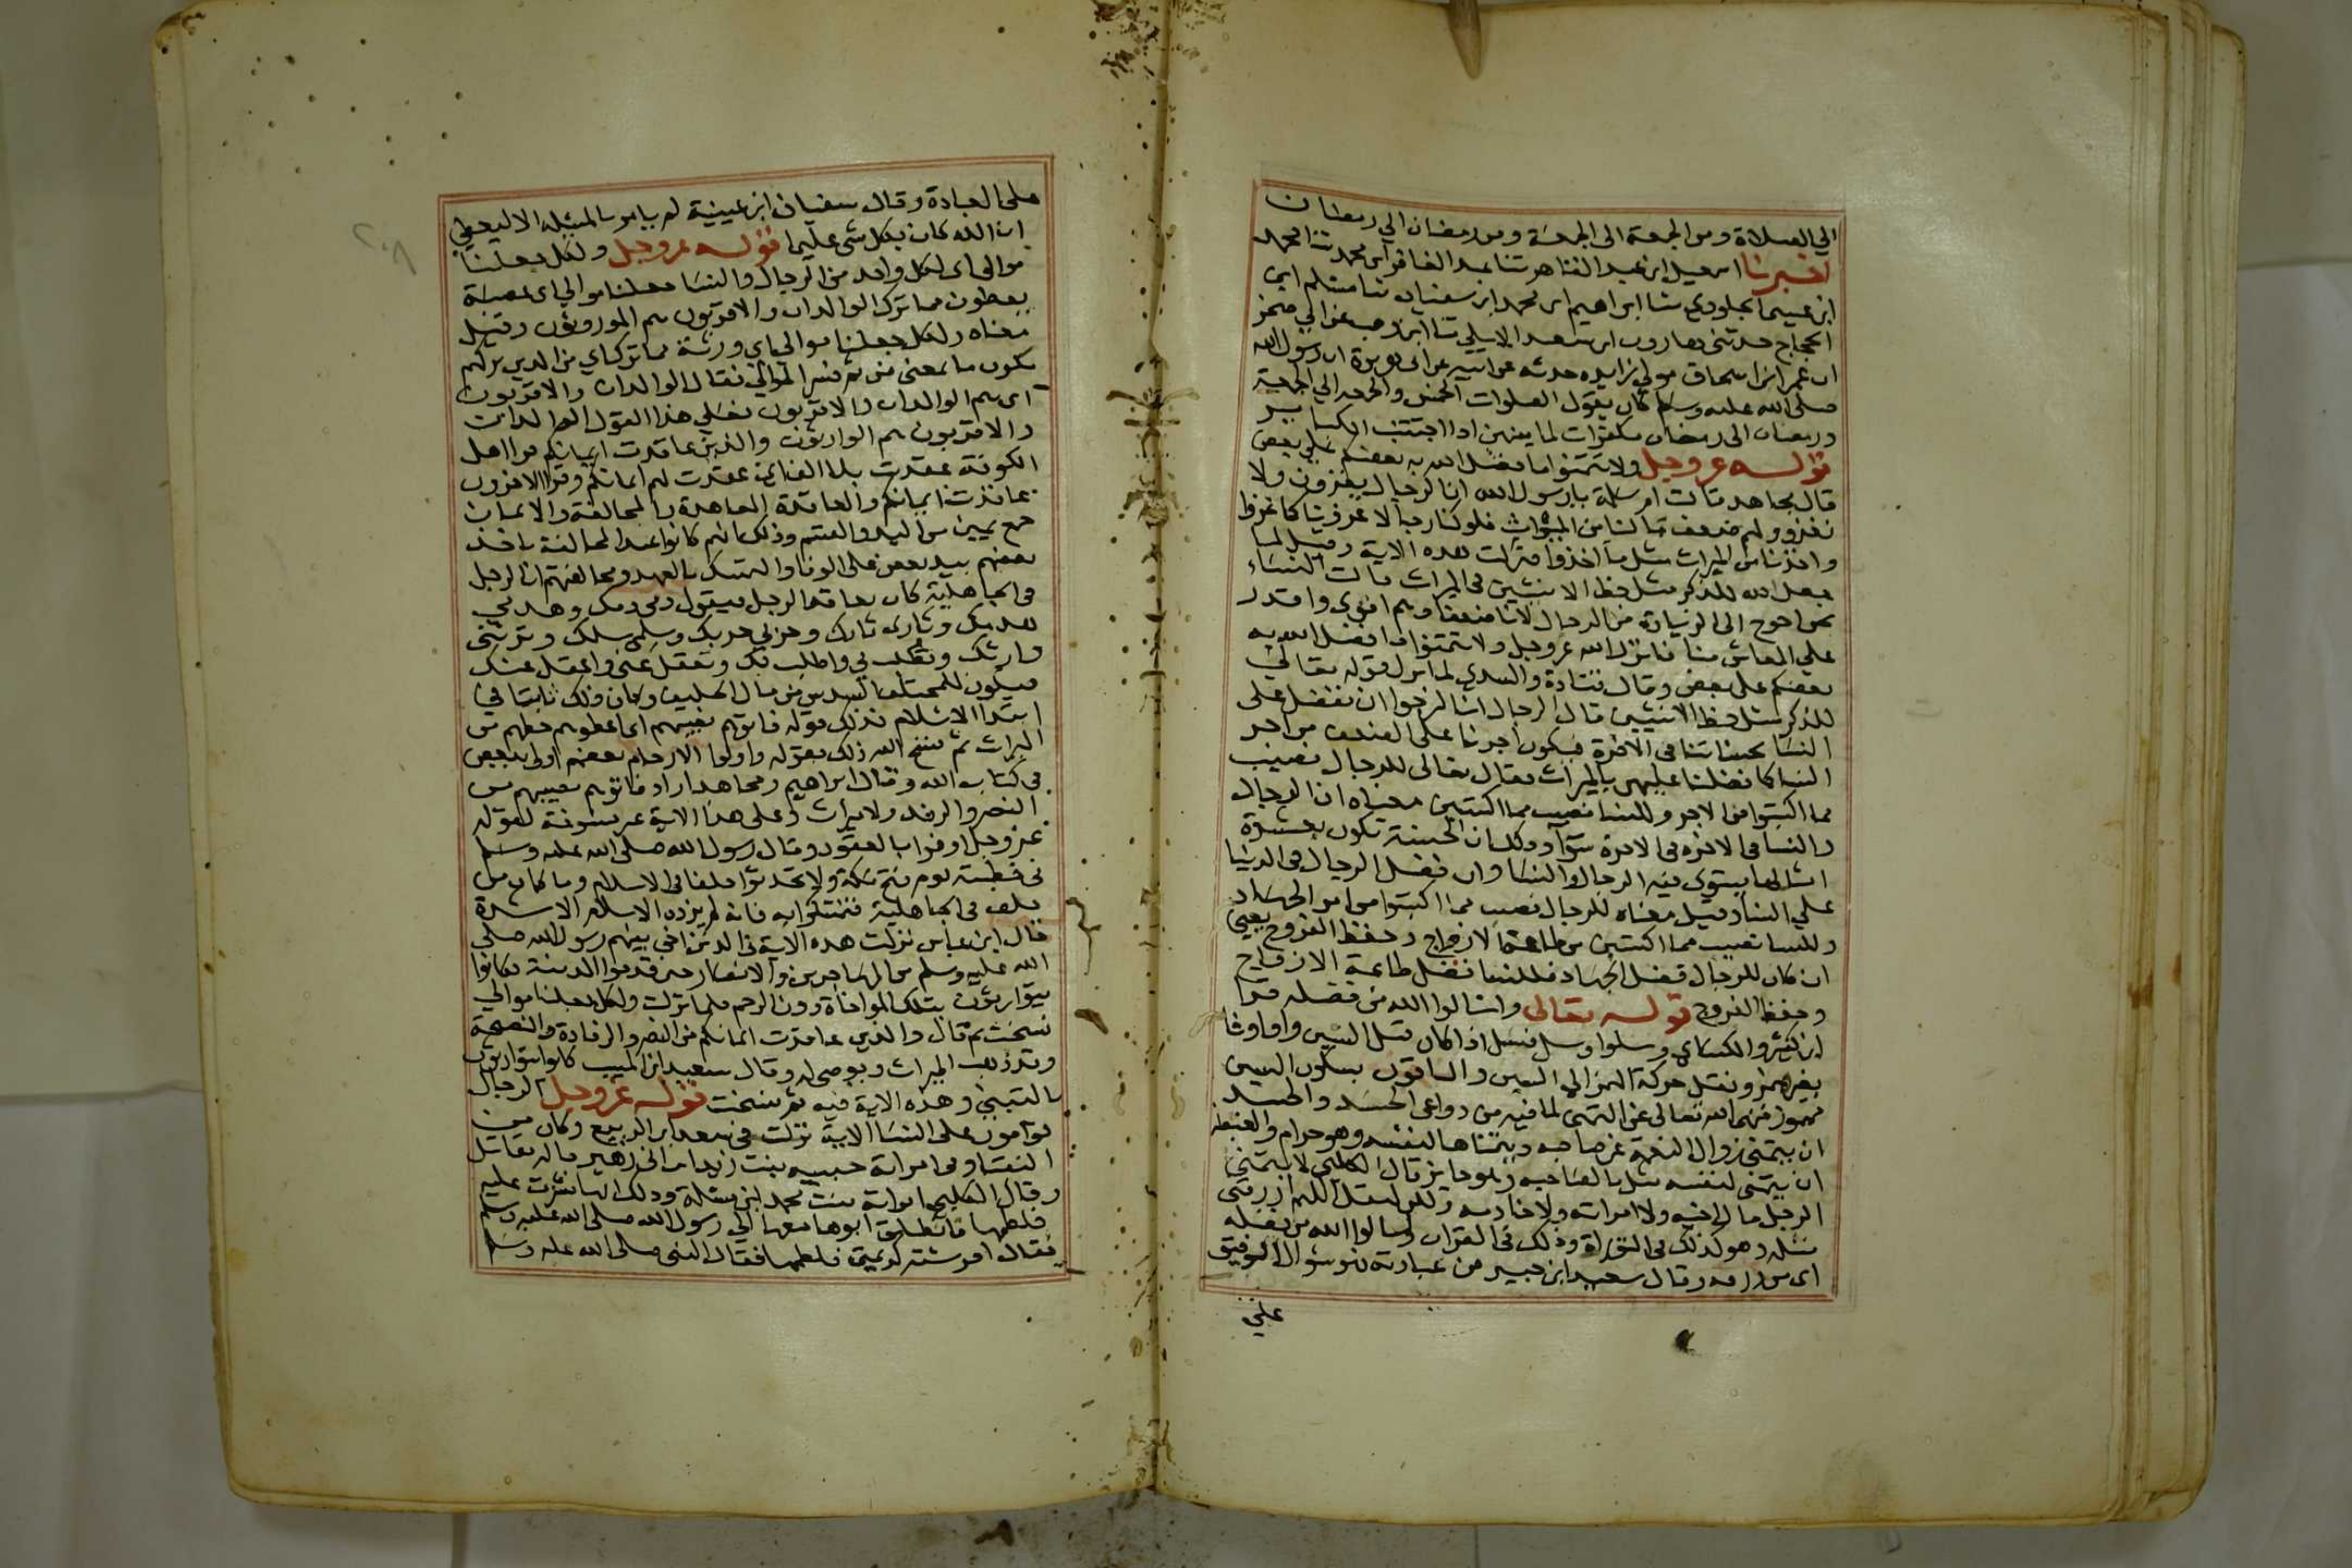 الي الصلاة ومن الجمعة الى الجمعة ومن رمضان الي رمضان
اخبرنا اسمعيل ابن عبد القاهر ثنا عبد الغافر ابن محمد ثنا محمد
ابن عيسى الجلودي ثنا ابراهيم ابن محمد ابن سفيان ثنا مسلم ابن
الحجاج حدثني هارون ابن سعد الايلي ثنا ابن وهب عن ابي صخر
ان عمر ابن اسحاق مولى زايده حدثه عن ابيه عن ابى هريرة ان رسول الله
صلى الله عليه وسلم كان يقول الصلوات الخمس والجمعه الي الجمعة
ورمضان الى رمضان مكفرات لما بينهن اذا اجتنبت الكباير
قوله عز وجل ولا تتمنوا ما فضل الله به بعضكم علي بعض
قال مجاهد قالت ام سلمة يا رسول الله ان الرجال يغزون ولا
نغزو ولهم ضعف ما لنا من الميراث فلو كنا رجالا غزونا كما غزوا
واخذنا من الميراث مثل ما اخذوا فنزلت هذه الاية وقيل لما
جعل الله للذكر مثل حظ الانثيين في الميراث قالت النساء
نحن احوج الى الزيادة من الرجال لانا ضعفا وهم اقوى واقدر
علي المعاش منا فانزل الله عز وجل ولا تتمنوا ما فضل الله به
بعضكم على بعض وقال قتادة والسدي لما نزل قوله تعالى
للذكر مثل حظ الانثيين قال الرجال انا لنرجوا ان نفضل على
النسا بحسناتنا في الاخرة فيكون اجرنا على الضعف من اجر
النسا كما فضلنا عليهن بالميراث فقال تعالى للرجال نصيب
مما اكتسبوا من الاجر وللنسا نصيب مما اكتسبن معناه ان الرجال
والنسا في الاجر في الاخرة سوآ وذلك ان الحسنة تكون بعشرة
امثالها يستوي فيه الرجال والنسا وان فضل الرجال في الدنيا
علي النسا وقيل معناه للرجال نصيب مما اكتسبوا من امر الجهاد
وللنسا نصيب مما اكتسبن من طاعة الازواج وحفظ الفروج يعني
ان كان للرجال فضل الجهاد فللنسا فضل طاعة الازواج
وحفظ الفروج قوله تعالى واسالوا الله من فضله قرا
ابن كثير والكساي وسلوا وسل فسل اذا كان قبل السين واو او فا
بغير همز ونقل حركة الهمز الي السين والباقون بسكون السين
مهموز فنهى الله تعالى عن التمني لما فيه من دواعي الحسد والحسد
ان يتمنى زوال النعمة عن صاحبه ويتمناها لنفسه وهو حرام والغبطة
ان يتمنى لنفسه مثل ما لصاحبه وهو جايز قال الكلبي لا يتمنى
الرجل مال اخيه ولا امراته ولا خادمه ولكن ليقل اللهم ارزقني
مثله وهو كذلك في التوراة وذلك في القران واسالوا الله من فضله
اى من رزقه وقال سعيد ابن جبير من عبادته فهو سوال التوفيق
على
على العبادة وقال سفيان ابن عيينة لم يامر بالمسئلة الا ليعطي
ان الله كان بكل شى عليما قوله عز وجل ولكل جعلنا
موالى اى لكل واحد من الرجال والنسا جعلنا موالي اى عصبة
يعطون مما ترك الوالدان والاقربون هم المورثون وقيل
معناه ولكل جعلنا موالي اي ورثة مما ترك اي من الذين تركهم
يكون ما بمعنى من ثم فسر الموالي فقال الوالدان والاقربون
اى هم الوالدان والاقربون فعلي هذا القول الوالدان
والاقربون هم الوارثون والذين عاقدت ايمانكم قرا اهل
الكوفة عقدت بلا الف اي عقدت لهم ايمانكم وقرا الاخرون
عاقدت ايمانكم والمعاقدة المعاهدة والمحالفة والايمان
جمع يمين من اليد والقسم وذلك انهم كانوا عند المحالفة ياخذ
بعضهم بيد بعض على الوفا والتمسك بالعهد ومحالفتهم ان الرجل
في الجاهلية كان يعاقد الرجل فيقول دمى دمك وهدمي
هدمك وثارى ثارك وحربي حربك وسلمى سلمك وترثني
وارثك وتطلب بي واطلب بك وتعقل عني واعقل عنك
فيكون للحليف السدس من مال الحليف وكان ذلك ثابتا في
ابتدا الاسلام فذلك قوله فاتوهم نصيبهم اي اعطوهم حظهم من
الميراث ثم نسخ الله ذلك بقوله واولوا الارحام بعضهم اولى ببعض
في كتاب الله وقال ابراهيم ومجاهد اراد فاتوهم نصيبهم من
النصر والرفد ولا ميراث وعلى هذا الاية غير منسوخة لقوله
عز وجل اوفوا بالعقود وقال رسول الله صلى الله عليه وسلم
في خطبته يوم فتح مكة ولا تحدثوا حلفا في الاسلام وما كان من
حلف في الجاهلية فتمسكوا به فانه لم يزده الاسلام الا شدة
قال ابن عباس نزلت هذه الاية في الذين اخى بينهم رسول الله صلى
الله عليه وسلم من المهاجرين والانصار حين قدموا المدينة فكانوا
يتوارثون بتلك المواخاة دون الرحم فلما نزلت ولكل جعلنا موالي
نسخت ثم قال والذين عاقدت ايمانكم من النصر والرفادة والنصيحة
وقد ذهب الميراث ويوصى له وقال سعيد ابن المسيب كانوا يتوارثون
بالتبني وهذه الاية فيه ثم نسخت قوله عز وجل الرجال
قوامون على النسا الاية نزلت في سعد ابن الربيع وكان من
النقبا وفي امراته حبيبه بنت زيد ابن ابى زهير قاله مقاتل
وقال الكلبي امراته بنت محمد ابن مسلمة وذلك انها نشزت عليه
فلطمها فانطلق ابوها معها الي رسول الله صلى الله عليه وسلم
فقال افرشته كريمتي فلطمها فقال النبي صلى الله عليه وسلم